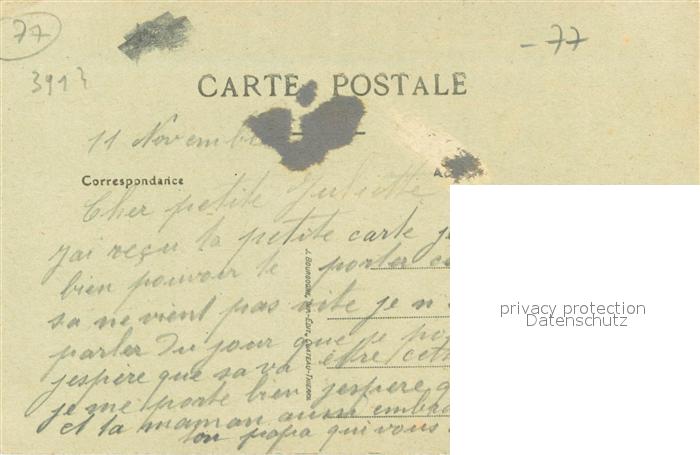 77
- 77
3913
CARTE POSTALE
11 Novembre
Correspondance
Cher petite Juliette
J'ai reçu ta petite carte je
bien pouvoir te porter
sa ne vient pas vite je n
parler du jour que je
j'espère que sa va être cette
je me porte bien j'espere
et ta maman aussi
ton papa qui vous
J. BOURGOGNE, IMP.-EDIT., CHATEAU-THIERRY
privacy protection
Datenschutz